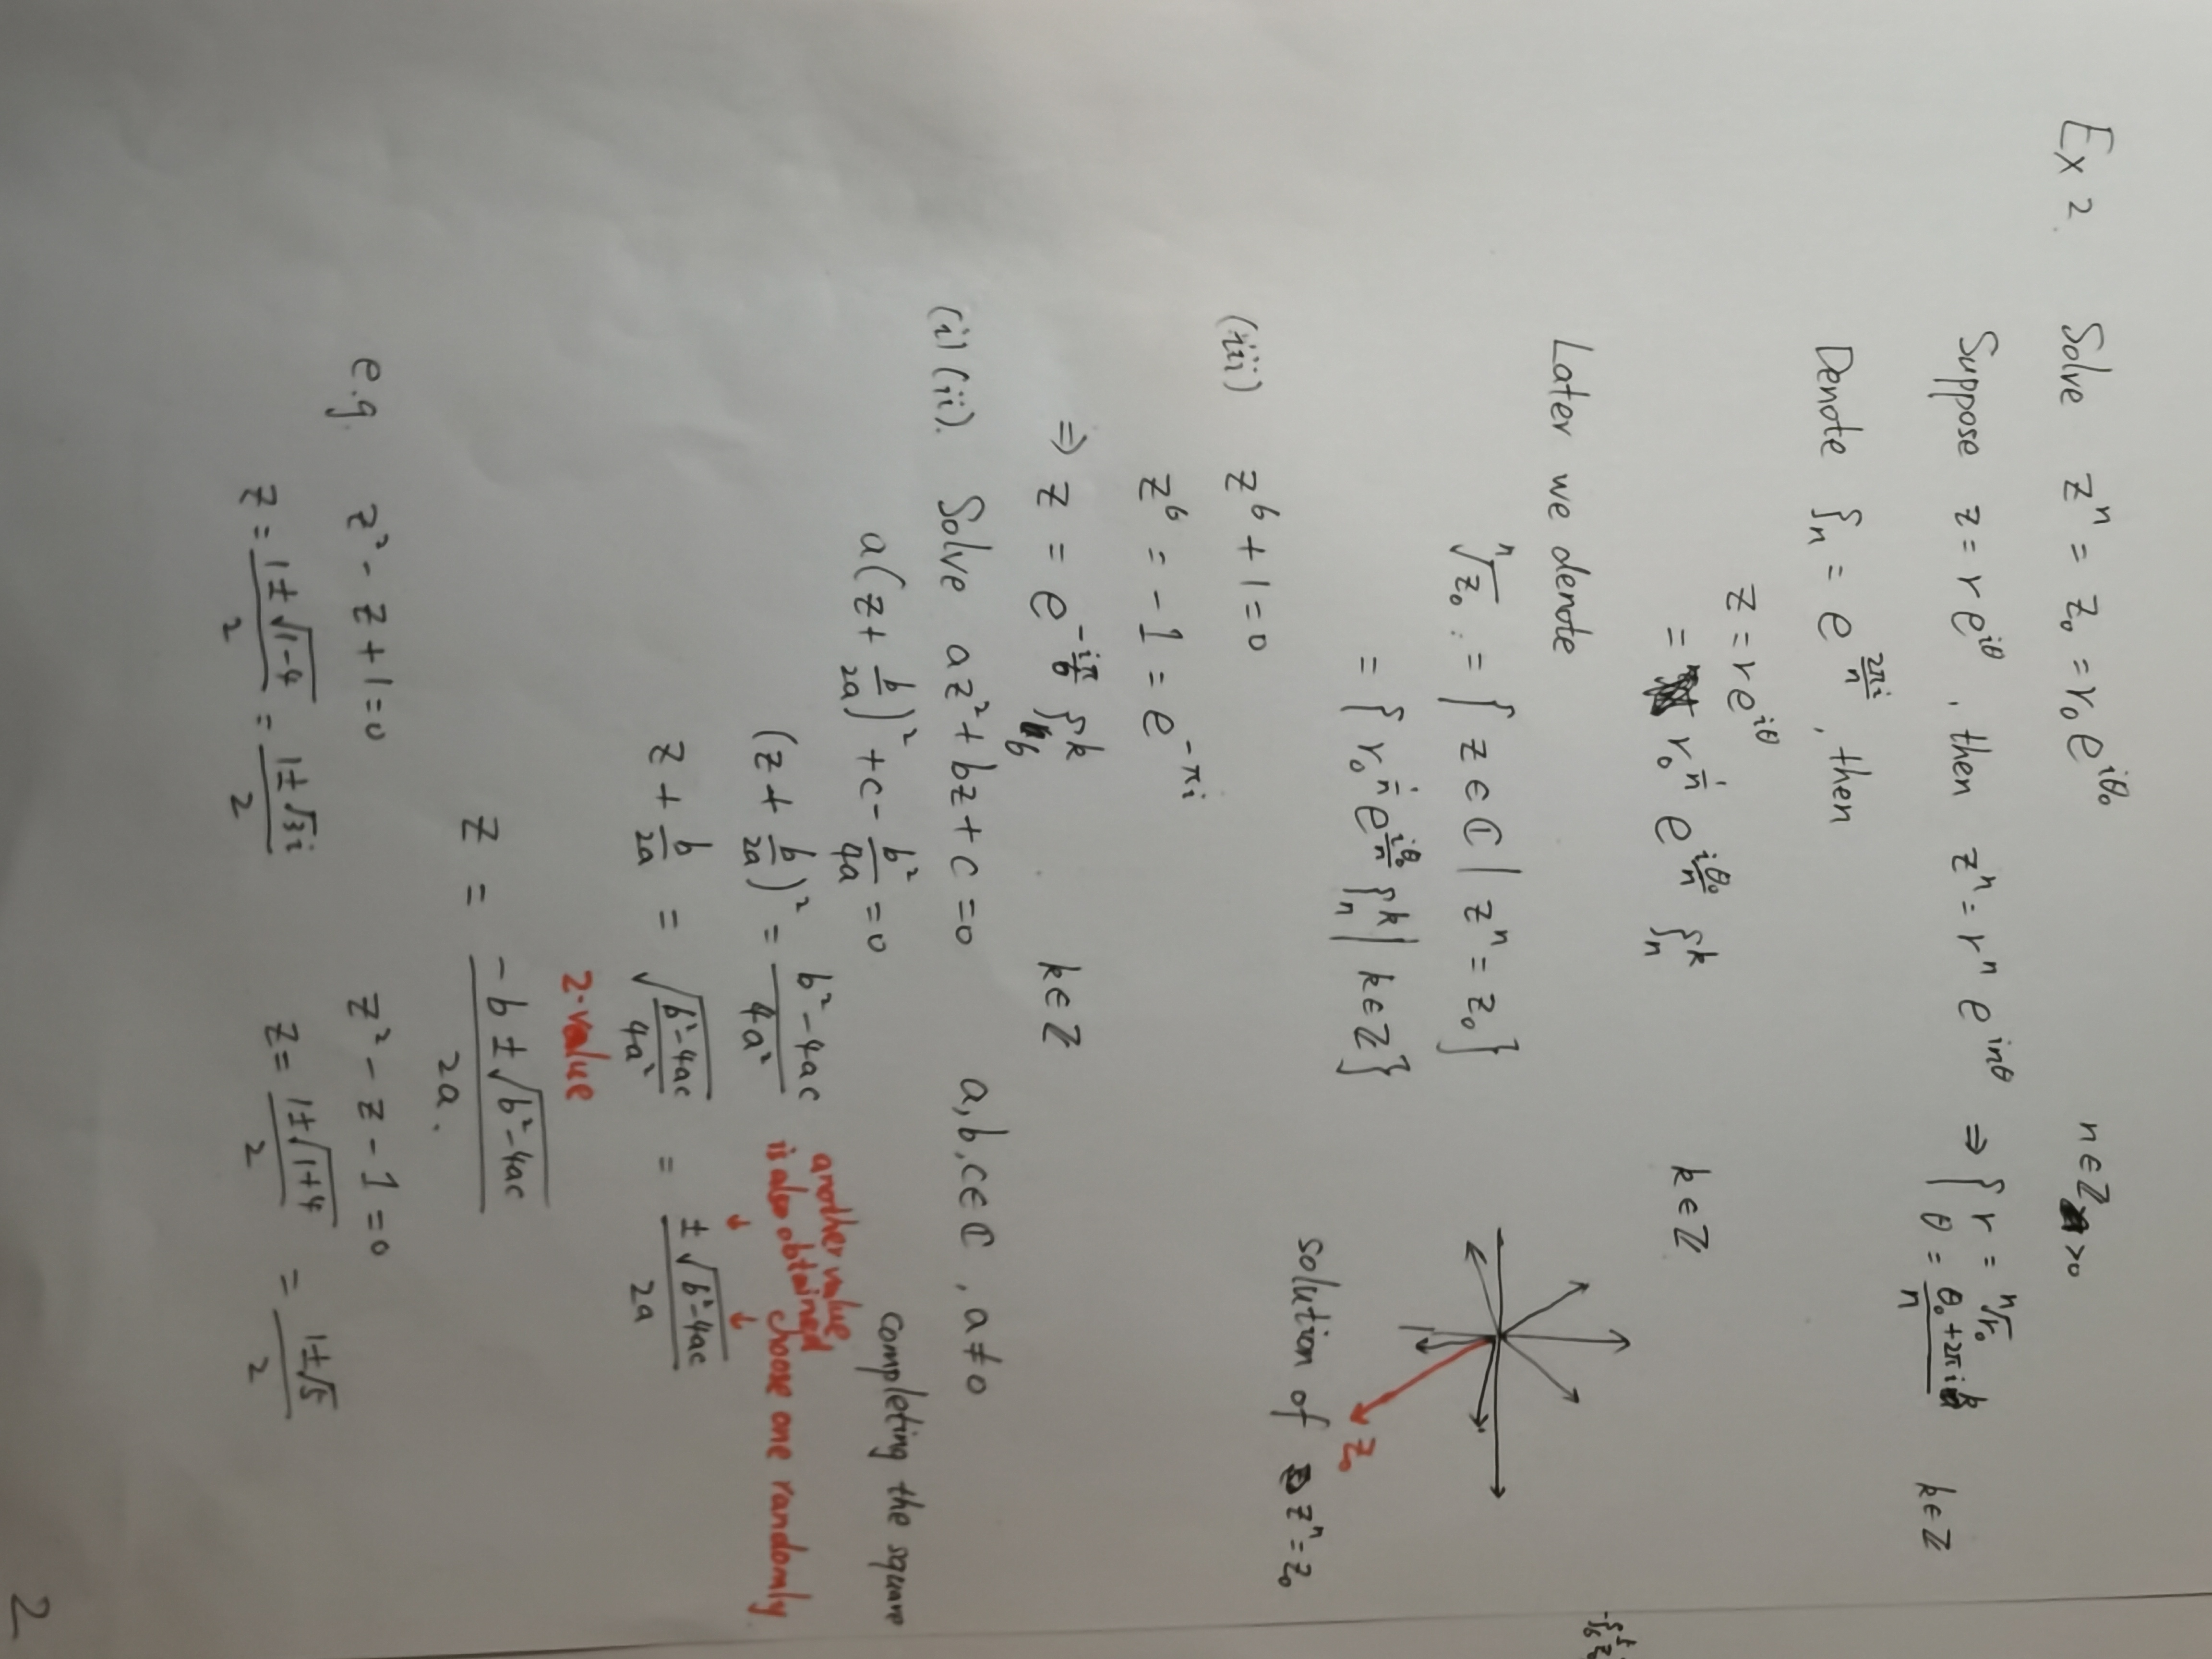 Ex 2. Solve zⁿ = z₀ = r₀ e^{iθ₀} n ∈ ℤ_{>0}
Suppose z = r e^{iθ}, then zⁿ = rⁿ e^{inθ} ⇒ { r = ⁿ√r₀
θ = (θ₀ + 2πik)/n k ∈ ℤ
Denote ξₙ = e^{2πi/n}, then
z = r e^{iθ}
= r₀^{1/n} e^{iθ₀/n} ξₙ^k k ∈ ℤ
Later we denote
ⁿ√z₀ := { z ∈ ℂ | zⁿ = z₀ }
= { r₀^{1/n} e^{iθ₀/n} ξₙ^k | k ∈ ℤ }
z₀
solution of zⁿ = z₀
(iii) z⁶ + 1 = 0
z⁶ = -1 = e^{-πi}
⇒ z = e^{-iπ/6} ξ₆^k k ∈ ℤ
(i) (ii). Solve az² + bz + c = 0 a, b, c ∈ ℂ, a ≠ 0
a(z + b/2a)² + c - b²/4a = 0 completing the square
another value
is also obtained choose one randomly
(z + b/2a)² = (b² - 4ac)/4a²
↓ ↓
z + b/2a = √((b² - 4ac)/4a²) = ±√(b² - 4ac)/2a
2-value
z = (-b ± √(b² - 4ac))/2a.
e.g. z² - z + 1 = 0 z² - z - 1 = 0
z = (1 ± √(1-4))/2 = (1 ± √3 i)/2 z = (1 ± √(1+4))/2 = (1 ± √5)/2
2